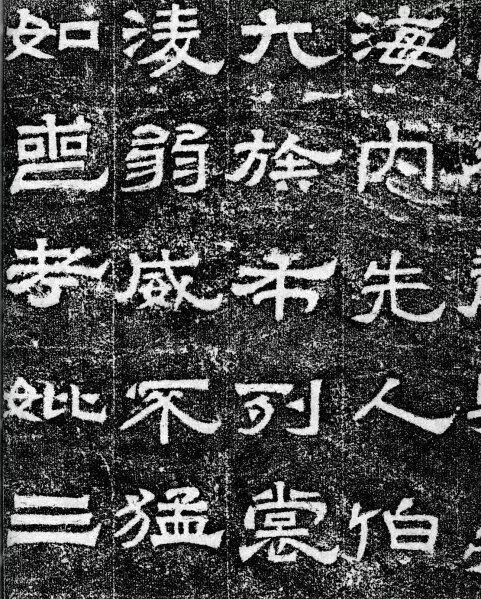 海内先人伯
六族布列裳
淩弱威不猛
如喪考妣三